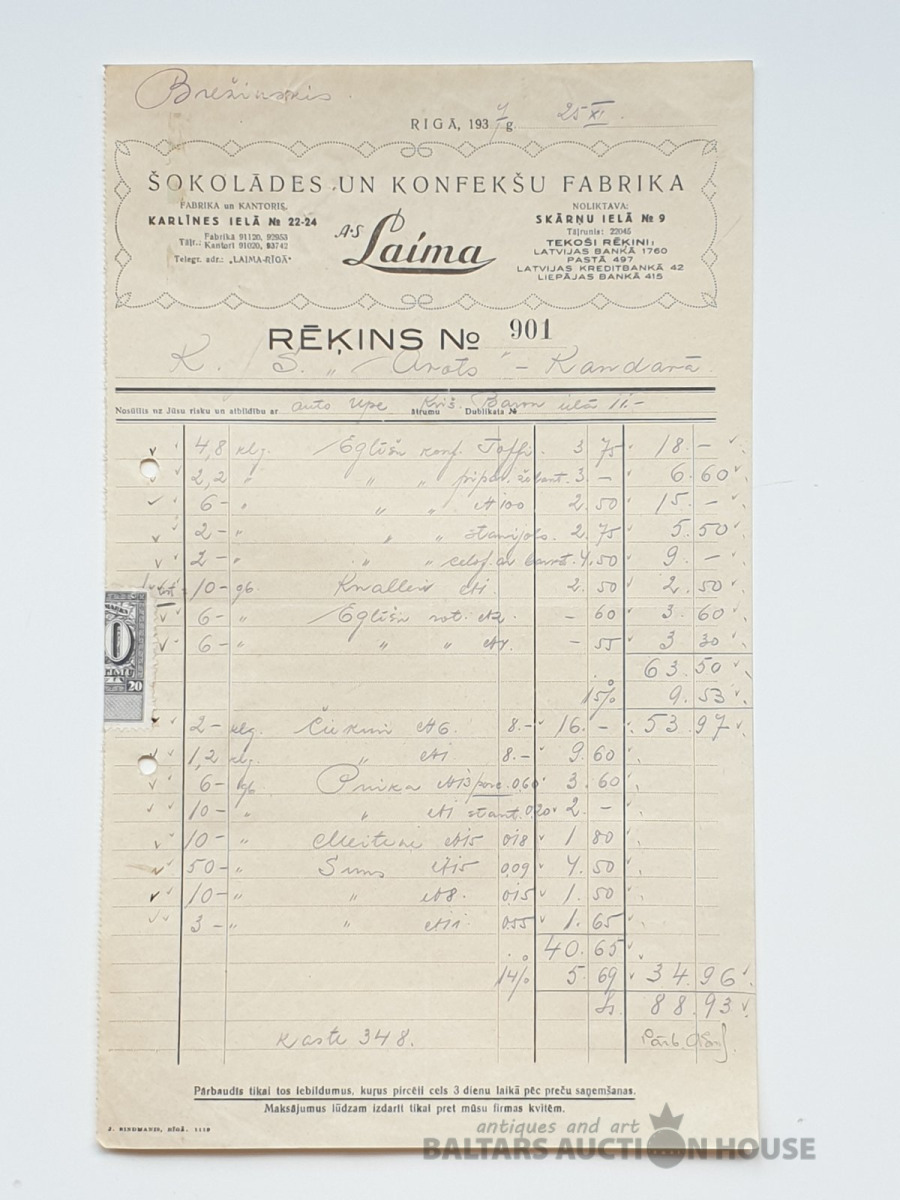 Brežinskis
RIGĀ, 1937 g. 25 XI.
ŠOKOLĀDES UN KONFEKŠU FABRIKA
FABRIKA un KANTORIS,
KARLĪNES IELĀ № 22-24
Tālr.: Fabrikā 91120, 92953
Kantorī 91020, 93742
Telegr. adr.: „LAIMA-RĪGĀ"
A-S Laima
NOLIKTAVA:
SKĀRŅU IELĀ № 9
Tālrunis: 22045
TEKOŠI RĒĶINI:
LATVIJAS BANKĀ 1760
PASTĀ 497
LATVIJAS KREDITBANKĀ 42
LIEPĀJAS BANKĀ 415
RĒĶINS № 901
K. S. „Arots" – Kandavā
Nosūtīts uz Jūsu risku un atbildību ar auto Upe Kriš. Baron ielā 11.-
ātrumu Dublikata №
4,8 klg. Eglīšu konf. Toffi 3 75 18. –
2,2 " " " 3. – 6. 60
6 – " " " № 100 2. 50 15. –
2 – " " " staniols. 2. 75 5. 50
2 – " " " celof. ar 4. 50 9. –
10 – gb. Knallein № 1 2. 50 2. 50
6 – " Eglīšu rot. № 2. – 60 3. 60
6 – " " " – 55 3 30
63. 50
15% 9. 53
2 – klg. № 6. 8. – 16. – 53. 97
1,2 klg. " № 1 8. – 9. 60
6 – gb № 13 0.60 3. 60
10 – " " № 1 stant. 0.20 2. –
10 – " Meitene № 15 0.18 1 80
50 – " Suns № 15 0,09 4. 50
10 – " " № 8. 0,15 1. 50
3 – " " № 11. 0.55 1. 65
40. 65
14% 5. 69 34. 96
Ls. 88. 93
Kaste 348. Pārb.
Pārbaudīs tikai tos iebildumus, kuŗus pircēji cels 3 dienu laikā pēc preču saņemšanas.
Maksājumus lūdzam izdarīt tikai pret mūsu firmas kvītēm.
J. RINDMANIS, RĪGĀ. 1112
20
antiques and art
BALTARS AUCTION HOUSE